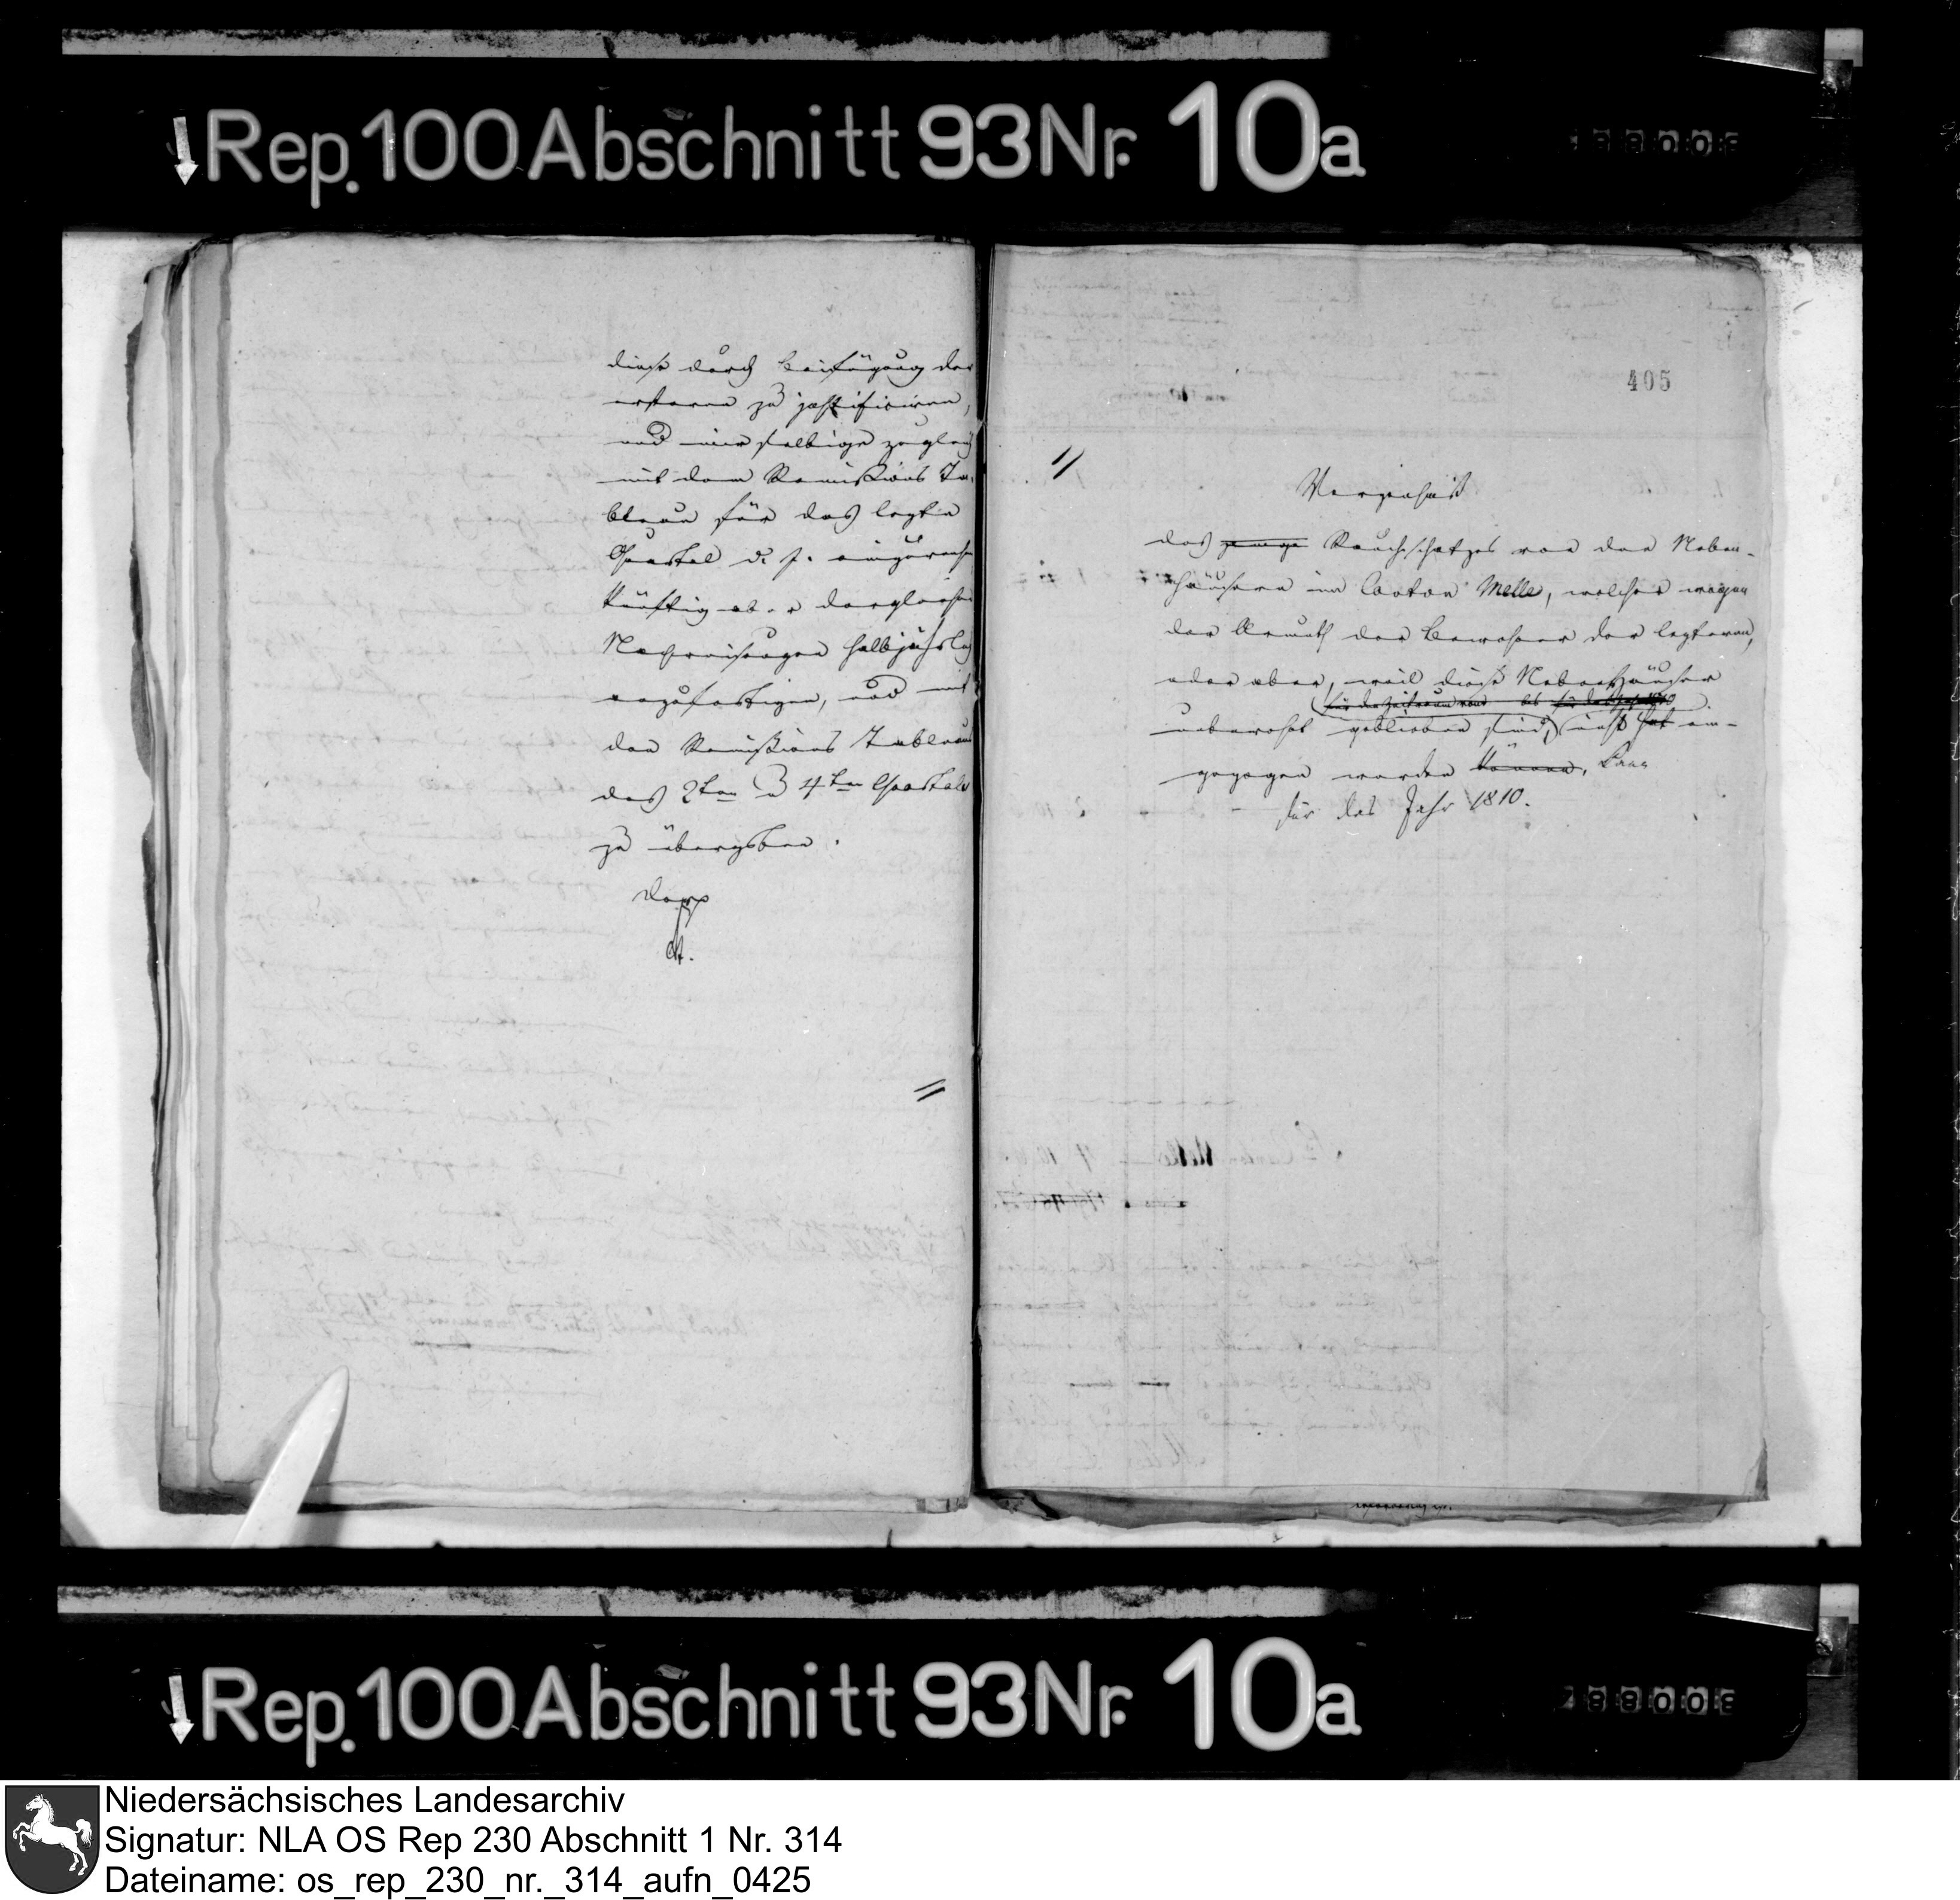 Rep. 100 Abschnitt 93 Nr. 10a
diese durch Beifügung der
ersteren zu justificiren,
und mir selbige zugleich
mit dem Remissions Ta-
bleau für das letzte
Quartal d. J. einzureichen
künftig aber dergleichen
Nachweisungen halbjährlich
anzufertigen, und mit
den Remissions Tableaus
des 2ten u 4ten Quartals
zu übergeben.
405
1/
Verzeichniß
des Rauchschatzes von den Neben-
häusern im Canton Melle, welcher wegen
der Armuth der Bewohner der letzteren,
oder aber, weil diese Nebenhäuser
für den Zeitraum von bis für das Jahr 1810
unbewohnt geblieben sind, nicht hat ein-
gezogen werden können.
für das Jahr 1810.
Rep. 100 Abschnitt 93 Nr. 10a
Niedersächsisches Landesarchiv
Signatur: NLA OS Rep 230 Abschnitt 1 Nr. 314
Dateiname: os_rep_230_nr._314_aufn_0425